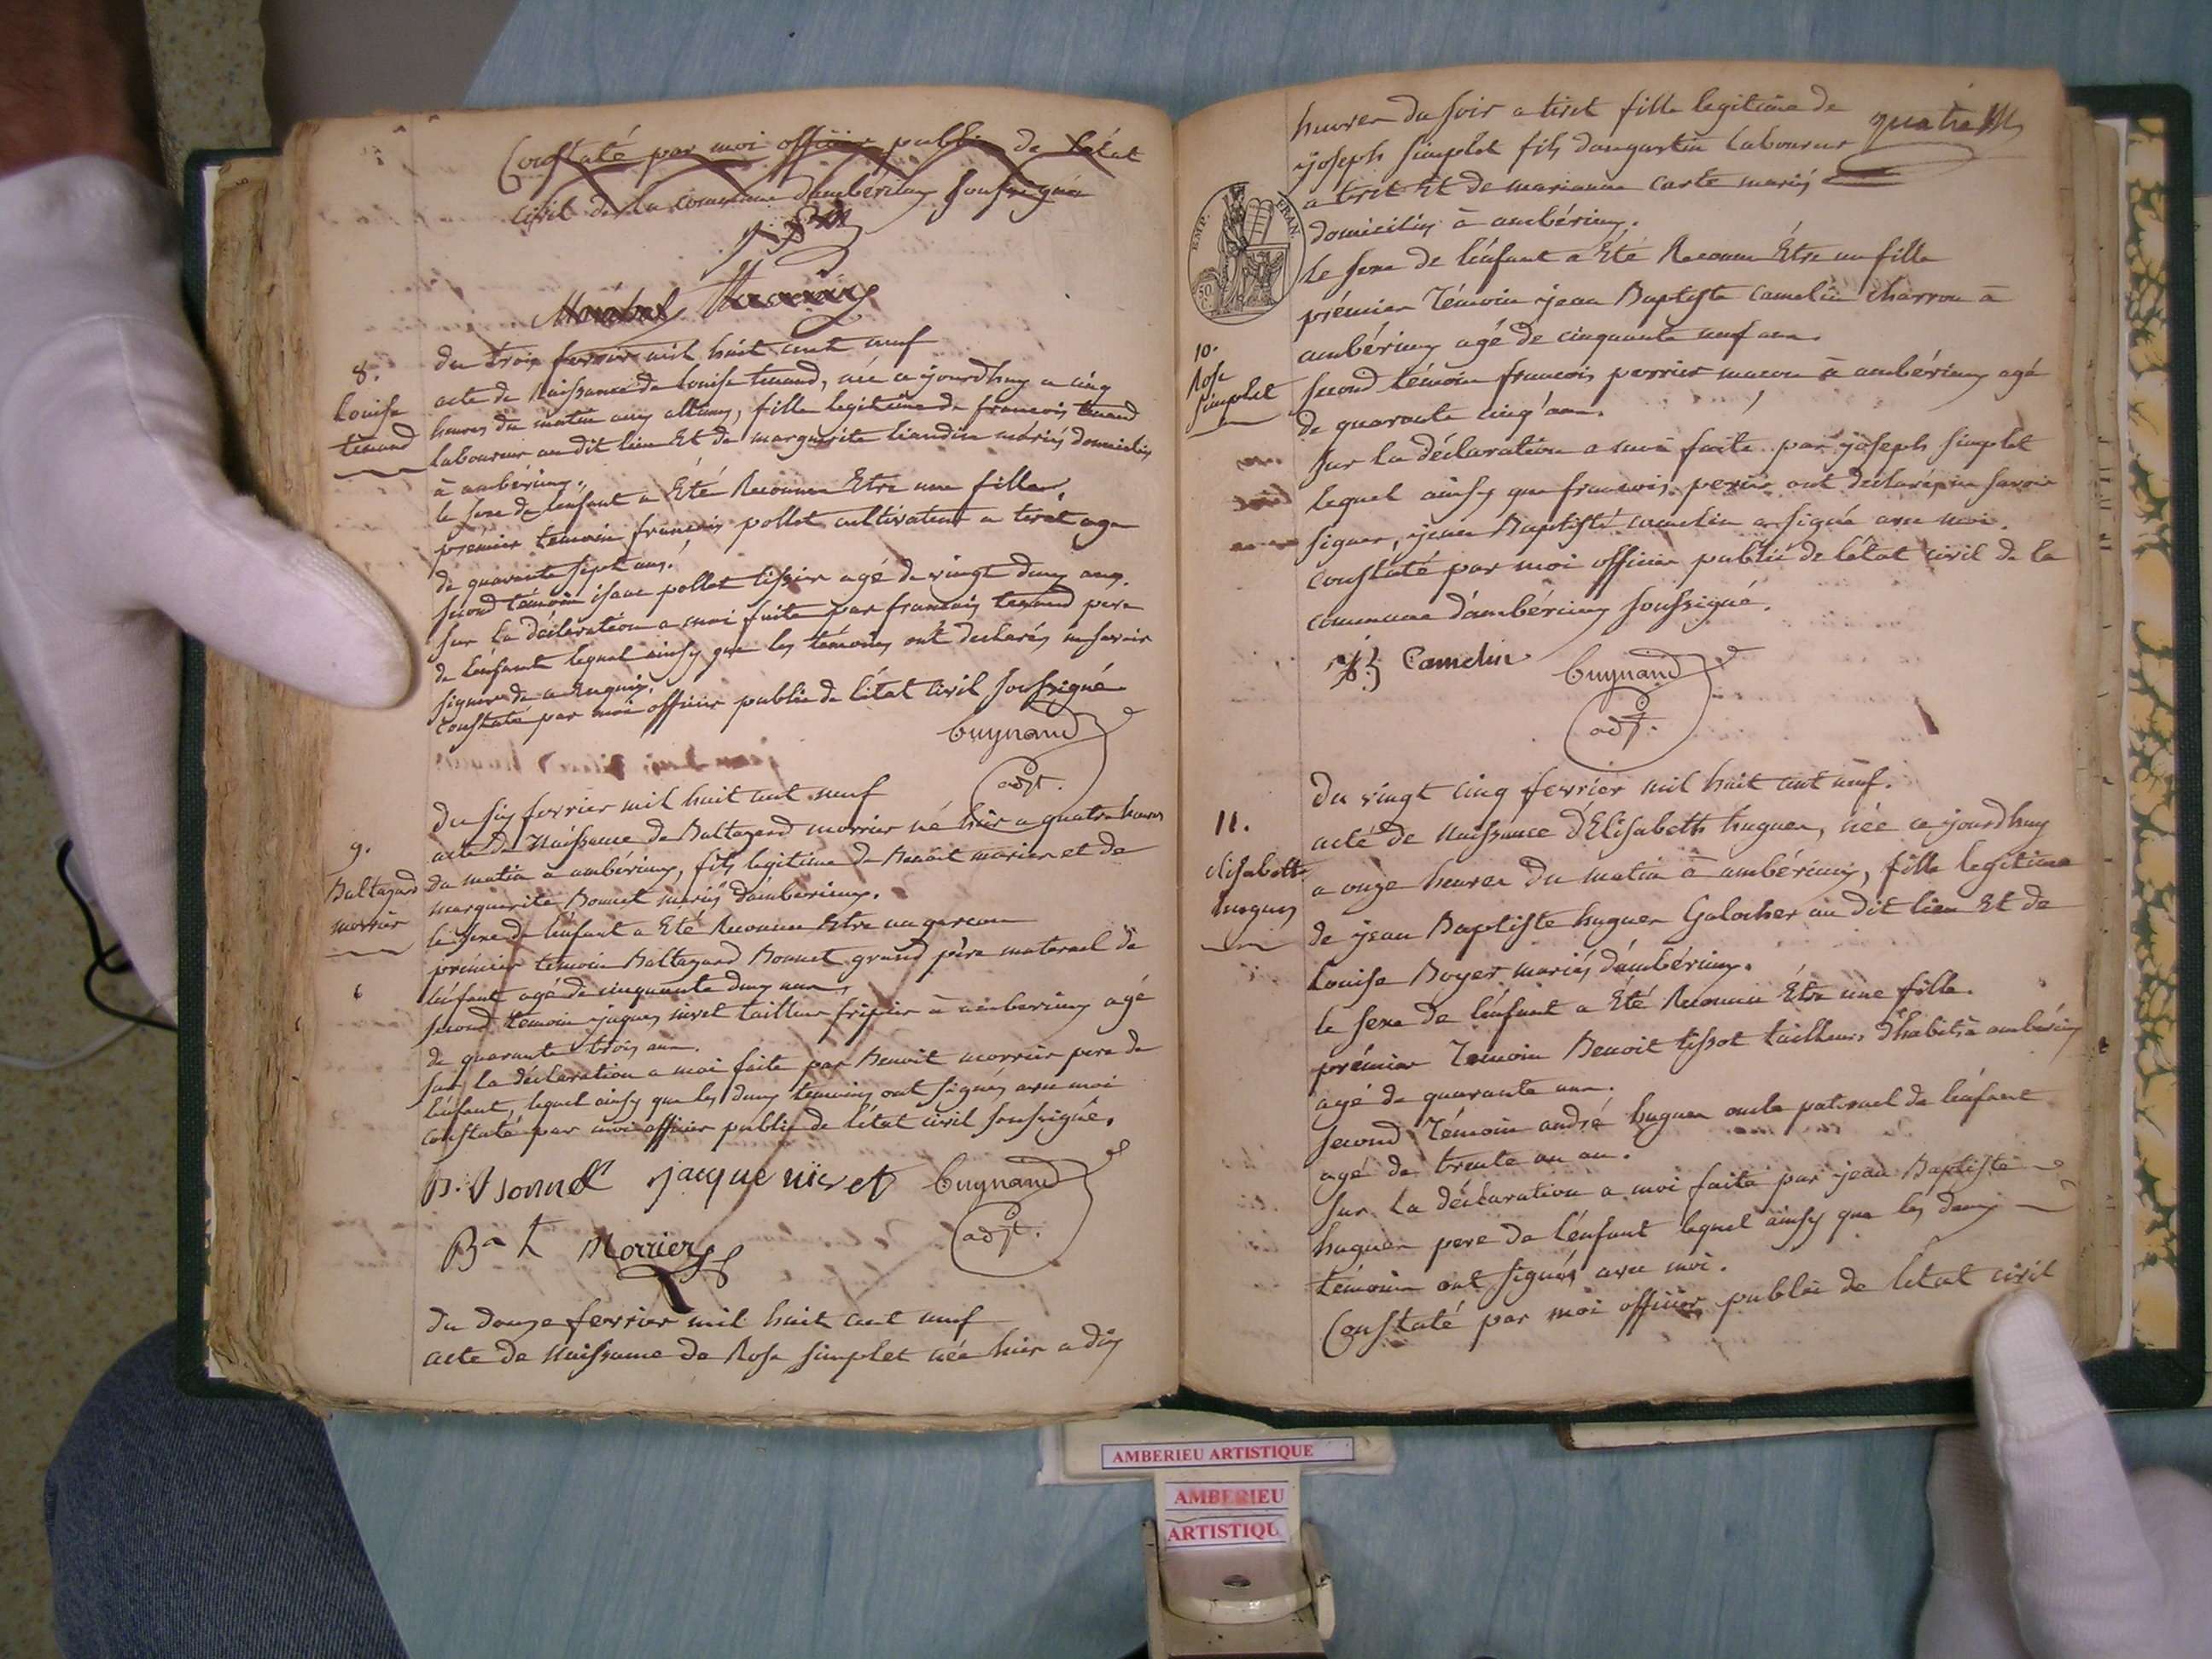 Constaté par moi officier public de l'état
civil de la commune d'ambérieux soussigné
8.
Louise
tenand
du trois fevrier mil huit cent neuf
acte de Naissance de Louise tenand, née ce jourdhuy a cinq
heures du matin aux allimes, fille legitime de francois tenand
laboureur au dit lieu Et de marguerite liaudin mariés domiciliés
à ambérieux.
le sexe de l'enfant a Eté Reconnu Etre une fille.
prémier temoin françois pollet cultivateur a tiret age
de quarante sept ans.
second témoin isaac pollet tissier agé de vingt deux ans.
sur la déclaration a moi faite par francois tenand pere
de l'enfant lequel ainsy que les témoins ont declarés ne savoir
signer de ce Enquis.
Constaté par moi officier public de l'état civil soussigné
Guynand
adjt.
9.
Baltazard
morrier
du six fevrier mil huit cent neuf
acte de Naissance de Baltazard morrier né hier a quatre heures
du matin a ambérieux, fils legitime de Benoit morier et de
marguerite Bonnet mariés d'amberieux.
le sexe de l'enfant a Eté Reconnu Etre un garcon
prémier témoin Baltazard Bonnet grand père maternel de
l'enfant agé de cinquante deux ans.
second temoin jaques nivet tailleur fripier à amberieux agé
de quarante trois ans.
sur la déclaration a moi faite par Benoit morrier pere de
l'enfant, lequel ainsy que les deux temoins ont signés avec moi
constaté par moi officier public de l'état civil soussigné.
B. Bonnet jacque nivet Guynand
adjt.
Bn t Morrier
du douze fevrier mil huit cent neuf
acte de Naissance de Rose simplet née hier a dix
heures du soir a tiret fille legitime de
joseph simplet fils d'augustin laboureur
quatre
a tiret Et de marianne carte mariés
domiciliés à ambérieux.
EMP. FRAN.
50
10.
Rose
simplet
le sexe de l'enfant a Eté Reconnu Être une fille
prémier Témoin jean Baptiste camelin charron à
ambérieux agé de cinquante neuf ans.
second témoin francois perrier macon à ambérieux agé
de quarante cinq ans.
sur la déclaration a moi faite par joseph simplet
lequel ainsy que francois perrier ont déclarés ne savoir
signer, jean Baptiste camelin a signé avec moi.
constaté par moi officier public de l'état civil de la
commune d'ambérieux soussigné.
Camelin Guynand
adjt.
11.
elisabeth
hugues
du vingt cinq fevrier mil huit cent neuf.
acté de Naissance d'Elisabeth hugues, née ce jourdhuy
a onze heures du matin à ambérieux, fille legitime
de jean Baptiste hugues Galocher au dit lieu Et de
Louise Boyer mariés d'ambérieux.
le sexe de l'enfant a Eté Reconnu Être une fille.
prémier Témoin Benoit tissot tailleur d'habits à ambérieux
agé de quarante ans.
second Témoin andré hugues oncle paternel de l'enfant
agé de trente un an.
sur la déclaration a moi faite par jean Baptiste
hugues pere de l'enfant lequel ainsy que les deux
témoins ont signés avec moi.
Constaté par moi officier public de l'état civil
AMBERIEU ARTISTIQUE
AMBERIEU
ARTISTIQU